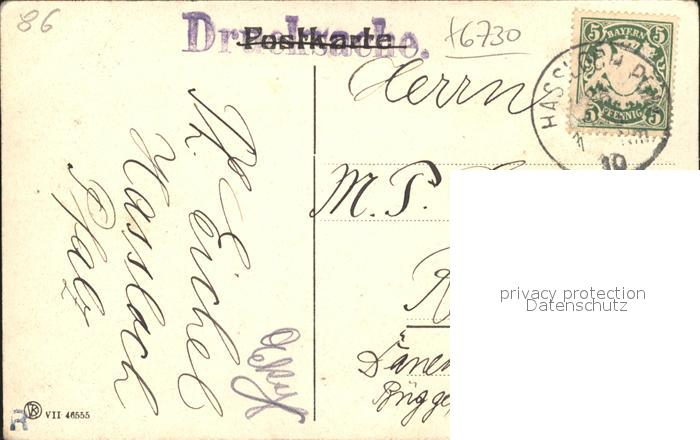 86
Drucksache.
Postkarte
+6730
5 BAYERN 5
5 PFENNIG 5
HASSLOCH PF
10
Herrn
M. P.
Däne
Brügge
Ph. Eichel
Hassloch
Pfalz
privacy protection
Datenschutz
R
VII 46555